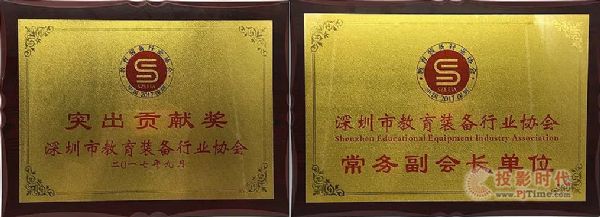 突出贡献奖
深圳市教育装备行业协会
二〇一七年九月
深圳市教育装备行业协会
Shenzhen Educational Equipment Industry Association
常务副会长单位
投影时代
www.PjTime.com